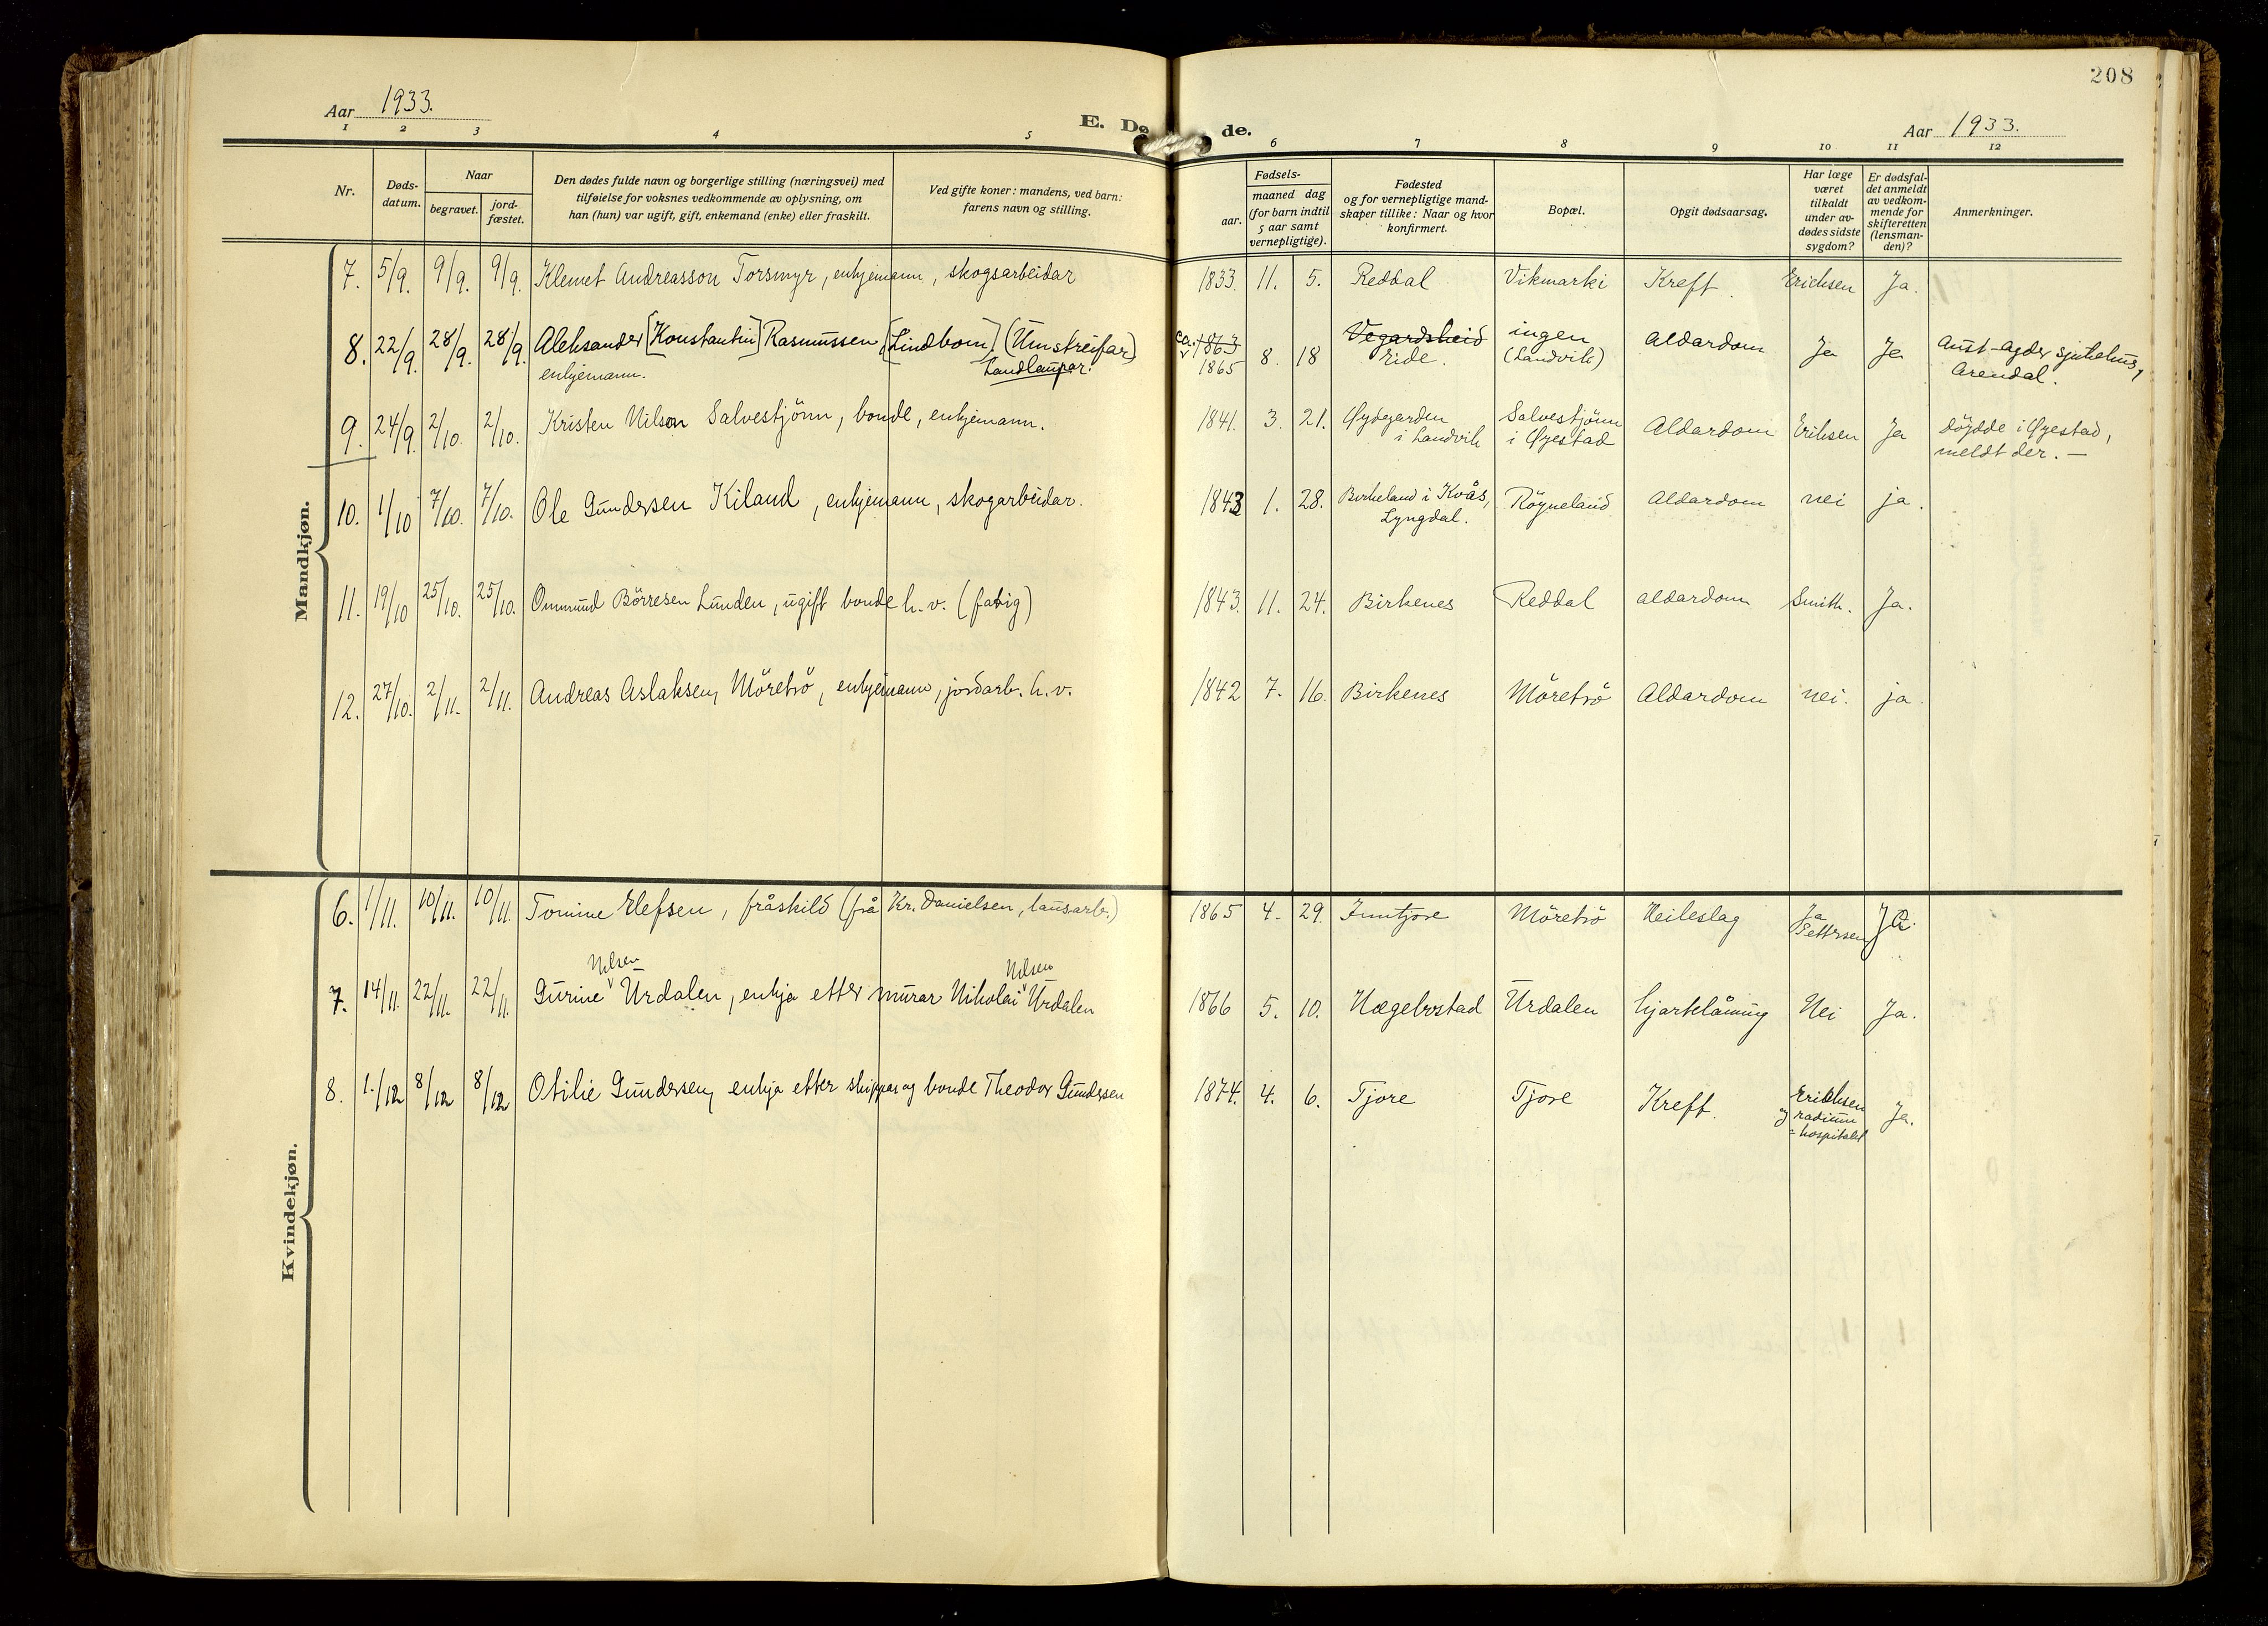 208
Aar 1933.
E. Dø de.
Aar 1933.
1 2 3 4 5 6 7 8 9 10 11 12
Nr.
Døds-
datum.
Naar
begravet.
jord-
fæstet.
Den dødes fulde navn og borgerlige stilling (næringsvei) med
tilføielse for voksnes vedkommende av oplysning, om
han (hun) var ugift, gift, enkemand (enke) eller fraskilt.
Ved gifte koner: mandens, ved barn:
farens navn og stilling.
Fødsels-
aar.
maaned dag
(for barn indtil
5 aar samt
vernepligtige).
Fødested
og for vernepligtige mand-
skaper tillike: Naar og hvor
konfirmert.
Bopæl.
Opgit dødsaarsag.
Har læge
været
tilkaldt
under av-
dødes sidste
sygdom?
Er dødsfal-
det anmeldt
av vedkom-
mende for
skifteretten
(lensman-
den)?
Anmerkninger.
Mandkjøn.
7. 5/9. 9/9. 9/9. Klemet Andreasson Torsmyr, enkjemann, skogsarbeidar 1833. 11. 5. Reddal Vikmarki Kreft. Erichsen Ja.
8. 22/9. 28/9. 28/9. Aleksander [Konstantin] Rasmussen, [Lindbom] (Umstreifar) ca. 1863 8. 18 Vegardsheid ingen Aldardom Ja Ja Aust-Agder sjukehus,
enkjemann. Landlaupar. 1865 Eide. (Landvik) Arendal.
9. 24/9. 2/10. 2/10. Kristen Nilson Salvestjönn, bonde, enkjemann. 1841. 3. 21. Øydegarden Salvestjönn Aldardom Eriksen Ja döydde i Øyestad,
i Landvik i Øyestad meldt der. —
10. 1/10 7/10. 7/10. Ole Gundersen Kiland, enkjemann, skogarbeidar. 1843 1. 28. Birkeland i Kvås, Rögneland Aldardom nei ja.
Lyngdal.
11. 19/10 25/10. 25/10. Ommund Börresen Lunden, ugift bonde h.v. (fatig) 1843. 11. 24. Birkenes Reddal aldardom Smith. Ja.
12. 27/10. 2/11. 2/11. Andreas Aslaksen, Möretrö, enkjemann, jordarb. h.v. 1842 7. 16. Birkenes Möretrö Aldardom nei. ja.
Kvindekjøn.
6. 1/11. 10/11. 10/11. Tomine Elefsen, fråskild (frå Kr. Danielsen, lausarb.) 1865 4. 29. Inntjore Möretrö Heileslag Ja Ja.
Pettersen
Nilsen Nilsen
7. 14/11. 22/11. 22/11. Gurine Urdalen, enkja etter murar Nikolai Urdalen 1866 5. 10. Hægebostad Urdalen hjartelåming Nei Ja.
8. 1./12 8/12 8/12 Otilie Gundersen, enkja etter skippar og bonde Theodor Gundersen 1874. 4. 6. Tjore Tjore Kreft. Erichsen Ja.
og radium
=hospitalet